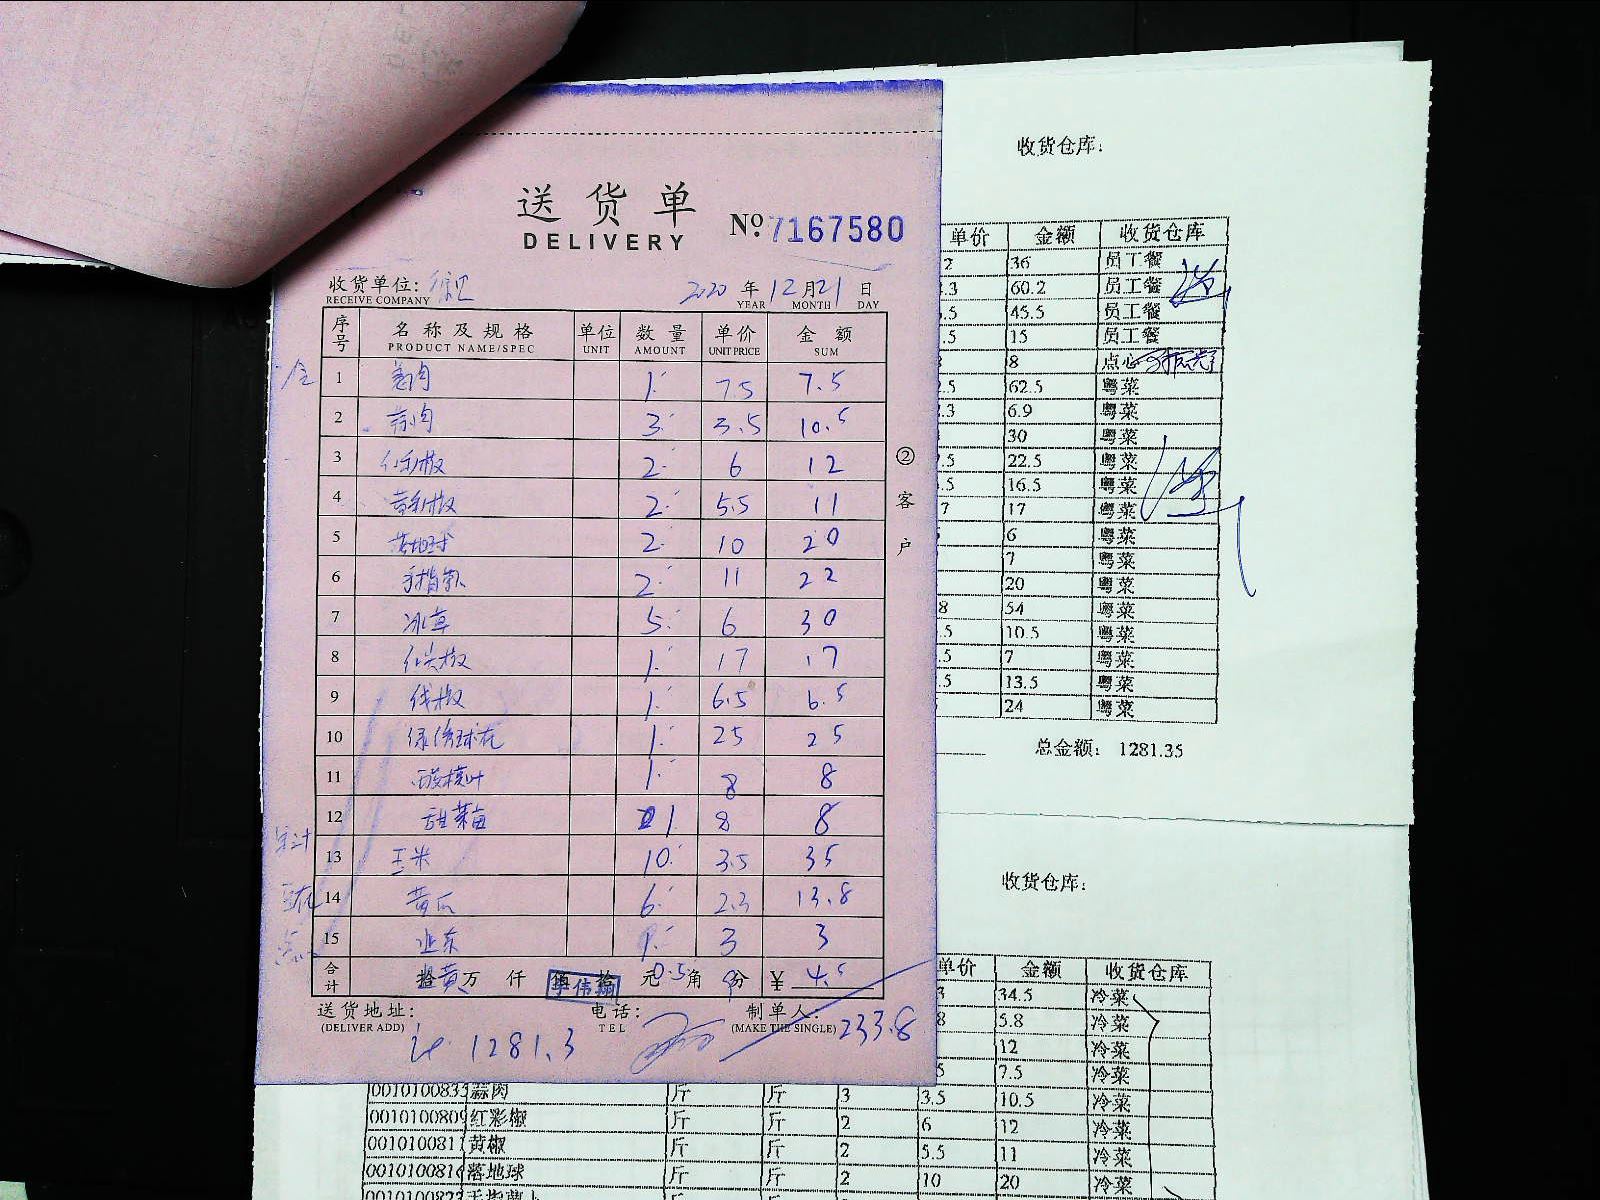 送货单
DELIVERY
№ 7167580
收货单位:
RECEIVE COMPANY
2020 年 12 月 21 日
YEAR MONTH DAY
序号 名称及规格 单位 数量 单价 金额
PRODUCT NAME/SPEC UNIT AMOUNT UNIT PRICE SUM
1 姜肉 1 7.5 7.5
2 蒜肉 3 3.5 10.5
3 红彩椒 2 6 12
4 黄彩椒 2 5.5 11
5 落地球 2 10 20
6 手指萝卜 2 11 22
7 冰草 5 6 30
8 红尖椒 1 17 17
9 线椒 1 6.5 6.5
10 绿绣球花 1 25 25
11 酸模叶 1 8 8
12 甜菜苗 1 8 8
13 玉米 10 3.5 35
14 黄瓜 6 2.3 13.8
15 1 3 3
合计 拾 万 仟 佰 拾 元 0.5 角 9 分 ¥ 4.5
李伟
送货地址:
(DELIVER ADD)
电话:
TEL
制单人:
(MAKE THE SINGLE)
233.8
计 1281.3
②客户
收货仓库:
单价 金额 收货仓库
2 36 员工餐
.3 60.2 员工餐
.5 45.5 员工餐
.5 15 员工餐
8 点心
.5 62.5 粤菜
.3 6.9 粤菜
30 粤菜
.5 22.5 粤菜
.5 16.5 粤菜
7 17 粤菜
6 粤菜
7 粤菜
20 粤菜
8 54 粤菜
.5 10.5 粤菜
.5 7 粤菜
.5 13.5 粤菜
24 粤菜
总金额: 1281.35
收货仓库:
单价 金额 收货仓库
3 34.5 冷菜
8 5.8 冷菜
12 冷菜
5 7.5 冷菜
0010100833 蒜肉 斤 斤 3 3.5 10.5 冷菜
0010100809 红彩椒 斤 斤 2 6 12 冷菜
0010100811 黄椒 斤 斤 2 5.5 11 冷菜
001010081 落地球 斤 斤 2 10 20 冷菜